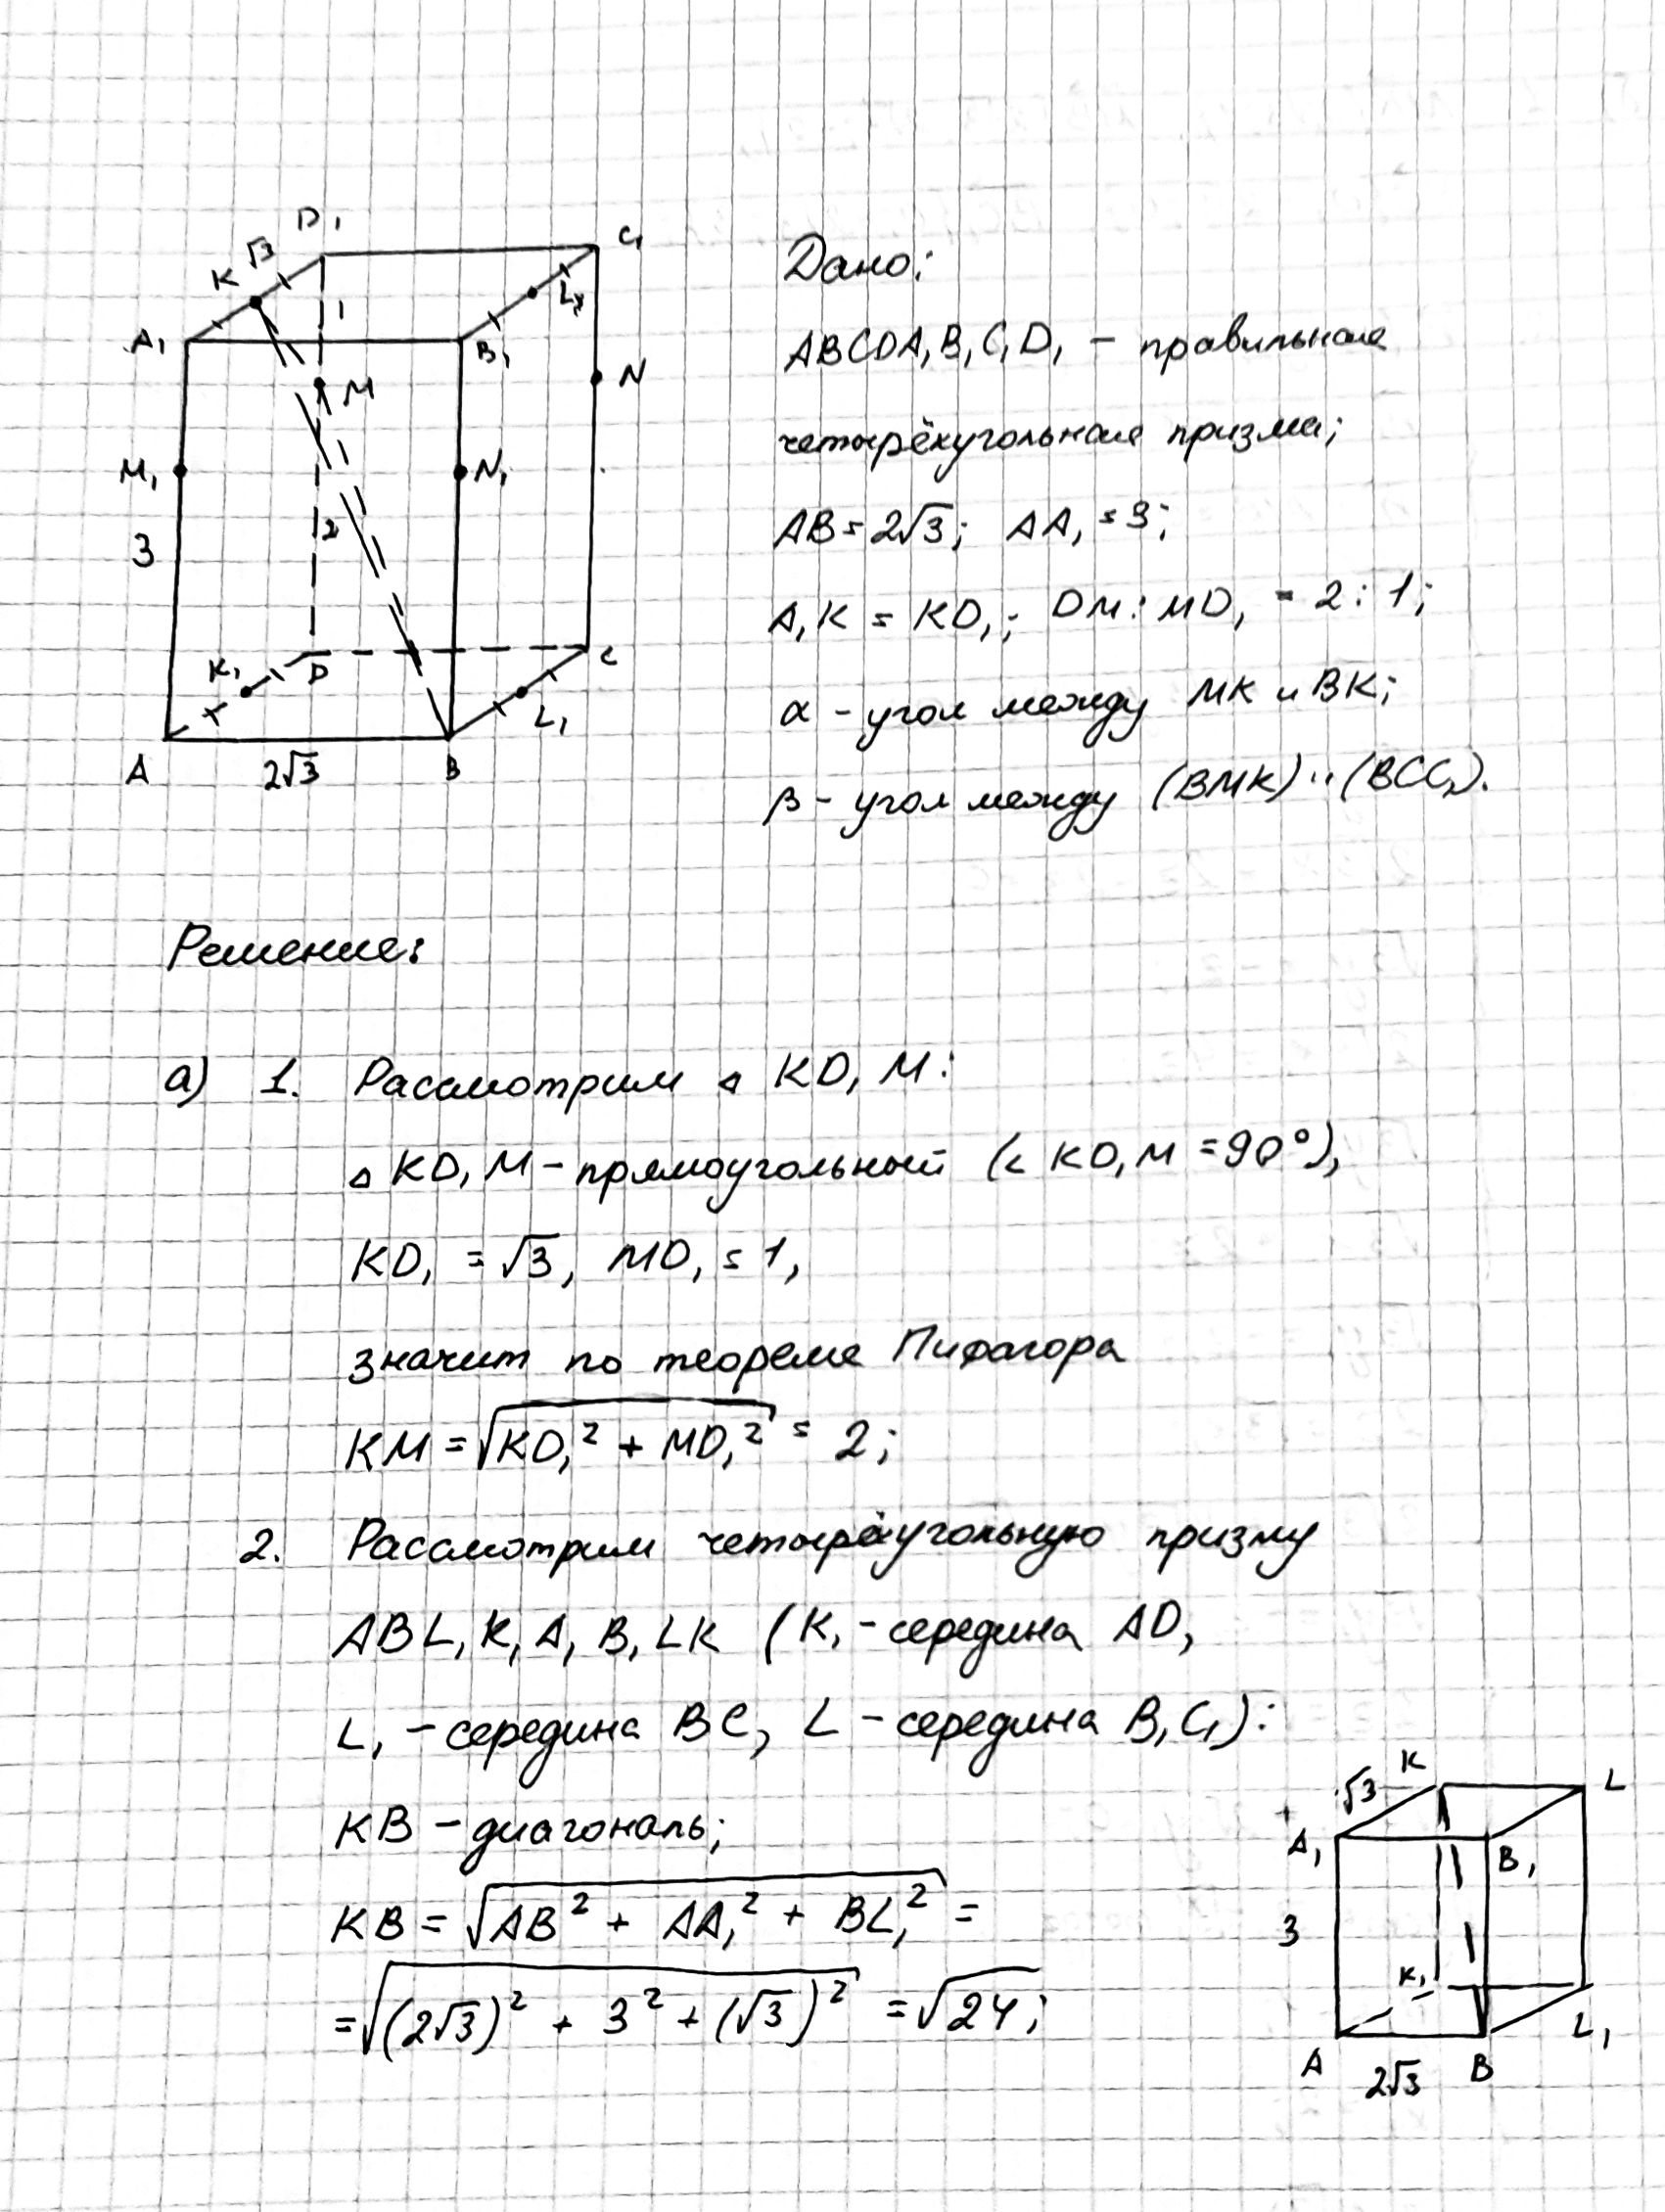 D₁
C₁
√3
K
L
A₁
B₁
1
M
N
M₁
N₁
3
2
K₁
D
C
L₁
A
2√3
B
Дано:
ABCDA₁B₁C₁D₁ – правильная
четырёхугольная призма;
AB = 2√3; AA₁ = 3;
A₁K = KD₁; DM : MD₁ = 2 : 1;
α – угол между MK и BK;
β – угол между (BMK) и (BCC₁).
Решение:
а) 1. Рассмотрим △ KD₁M:
△ KD₁M – прямоугольный (∠ KD₁M = 90°),
KD₁ = √3, MD₁ = 1,
значит по теореме Пифагора
KM = √(KD₁² + MD₁²) = 2;
2. Рассмотрим четырёхугольную призму
ABL₁K₁A₁B₁LK (K₁ – середина AD,
L₁ – середина BC, L – середина B₁C₁):
KB – диагональ;
KB = √(AB² + AA₁² + BL₁²) =
= √((2√3)² + 3² + (√3)²) = √24;
K
√3
L
A₁
B₁
3
K₁
L₁
A
2√3
B